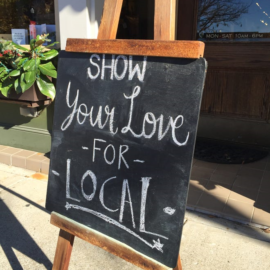 SHOW
Your Love
- FOR -
- LOCAL -